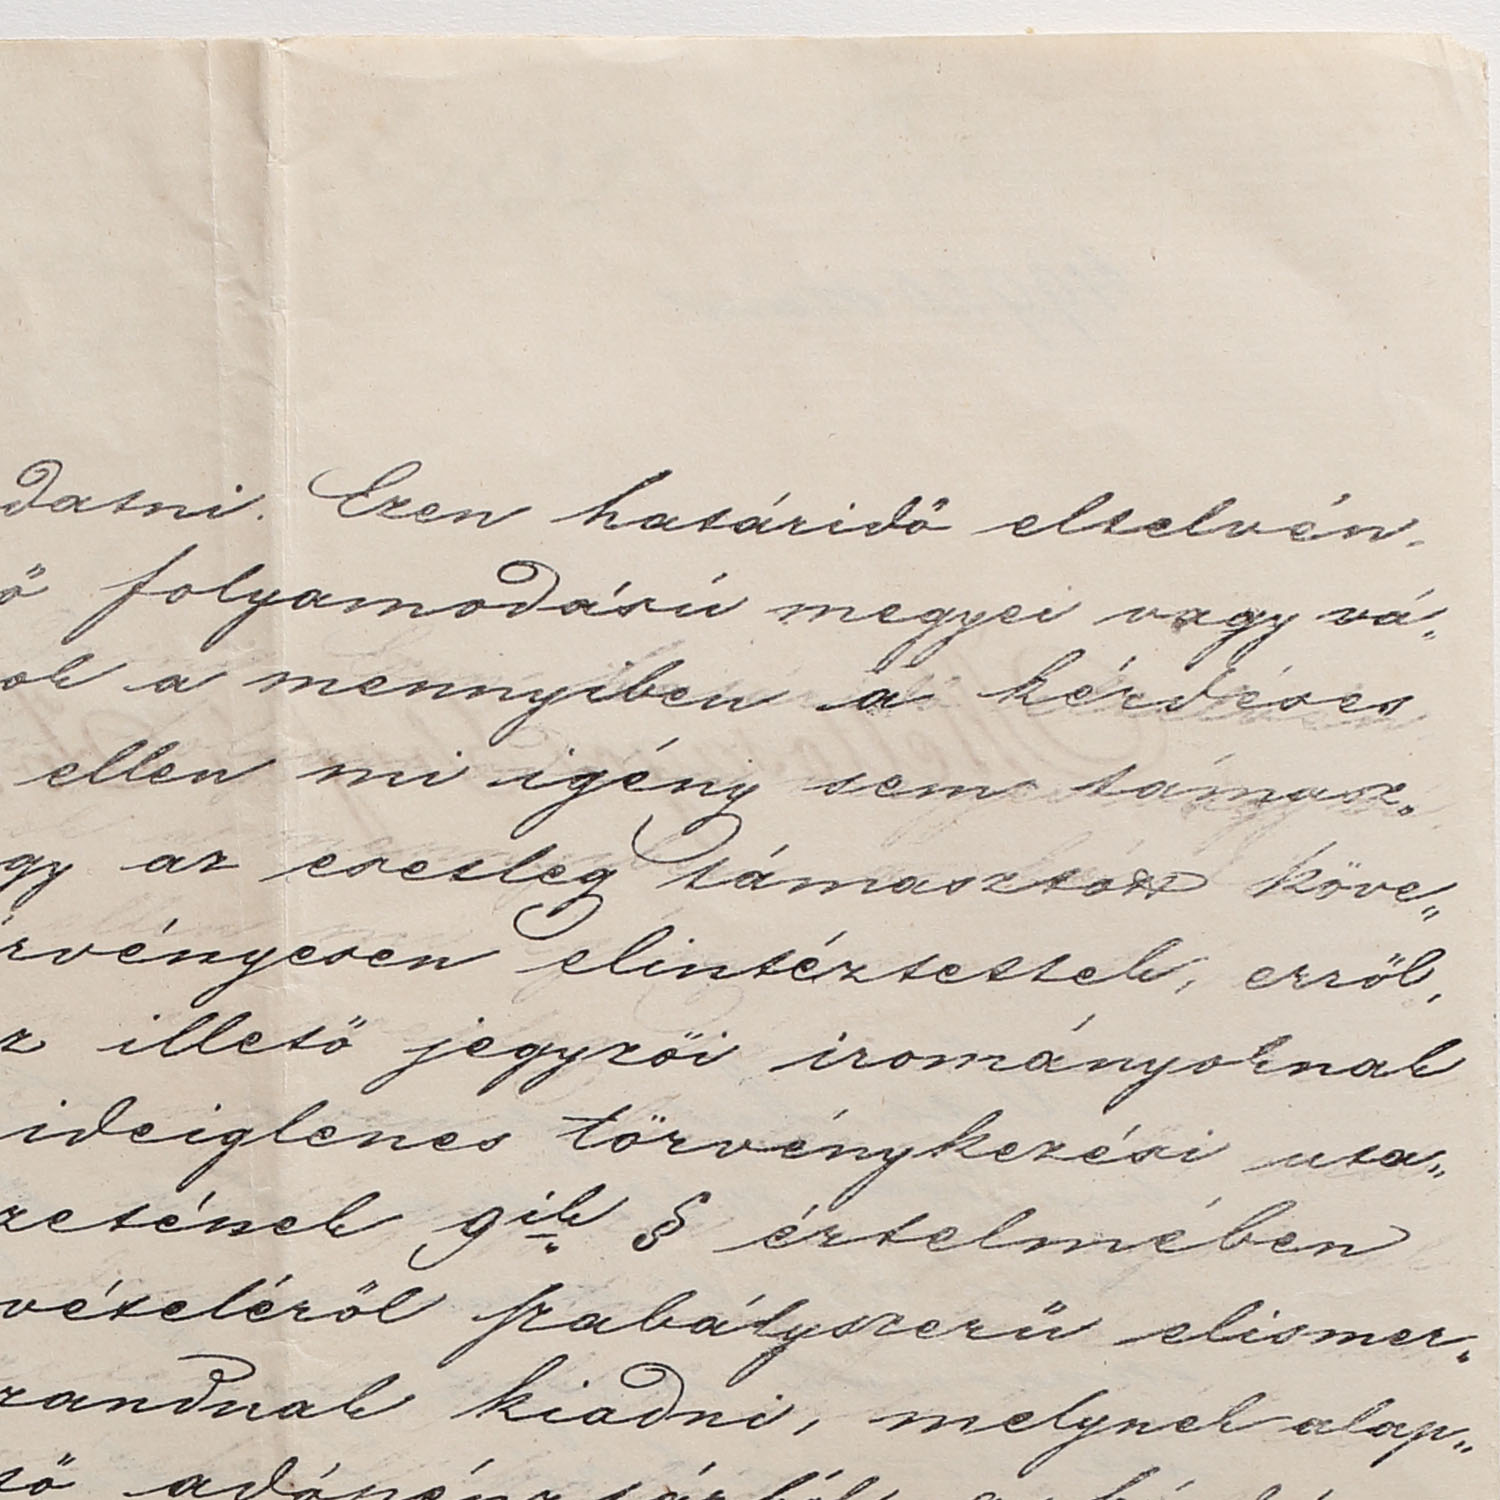 datni. Ezen határidő eltelvén,
ő folyamodású megyei vagy vá„
ok a mennyiben a kérdéses
ellen mi igény sem támasz„
gy az esetleg támasztott köve„
rvényesen elintéztettek, erről,
z illető jegyzői irományoknak
ideiglenes törvénykezési uta„
zetének 9ik § értelmében
vételéről szabályszerű elismer„
zandnak kiadni, melynek alap„
tő adópénztárból a